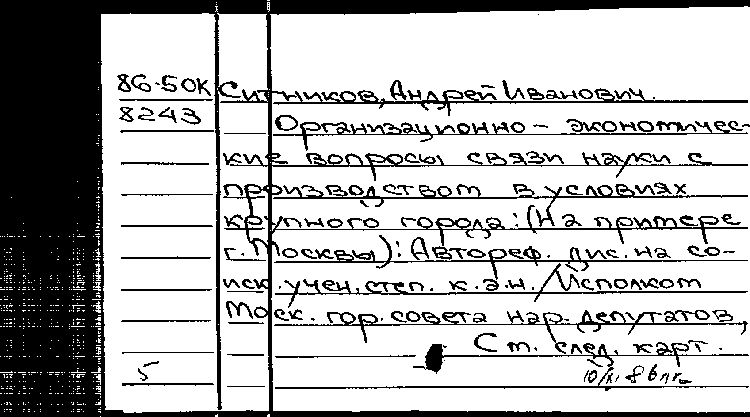 86-50К Ситников, Андрей Иванович.
8243 Организационно-экономичес-
кие вопросы связи науки с
производством в условиях
крупного города: (На примере
г. Москвы): Автореф. дис. на со-
иск. учен. степ. к.э.н. / Исполком
Моск. гор. совета нар. депутатов,
См. след. карт.
5